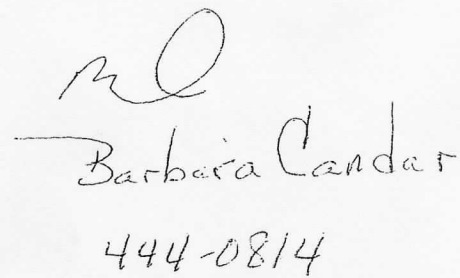 Barbara Candar
444-0814